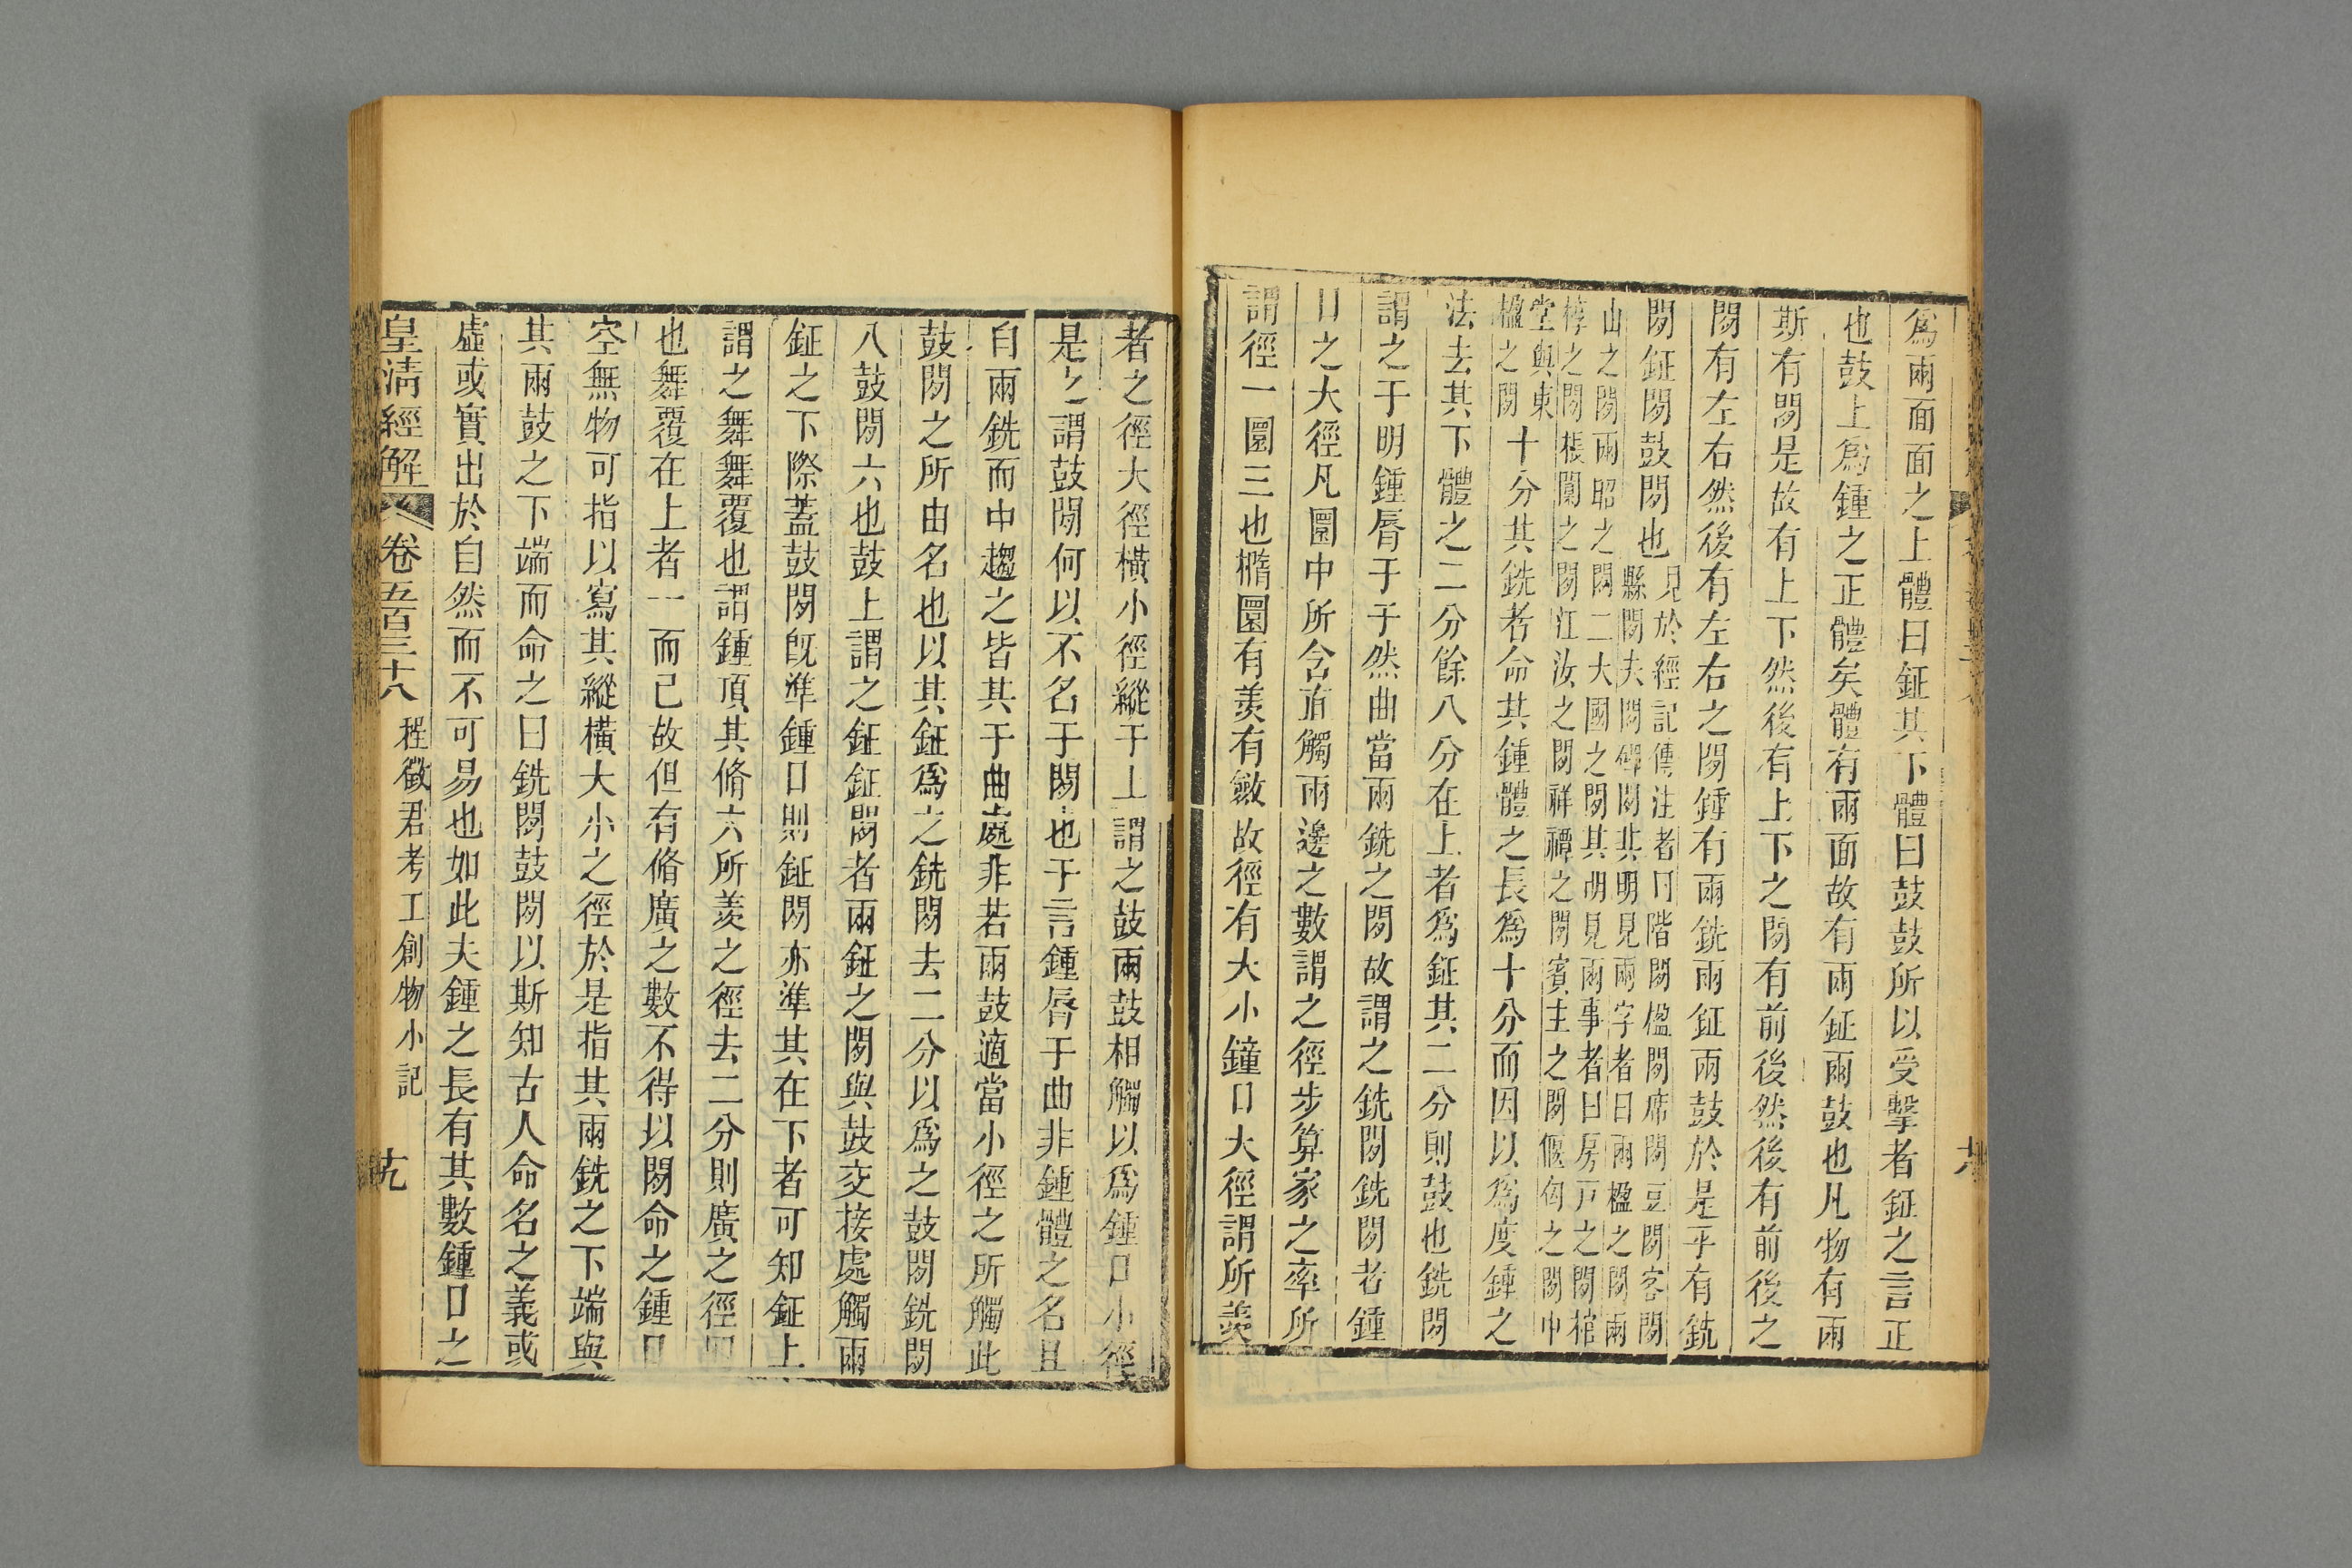 爲兩面面之上體曰鉦其下體曰鼓鼓所以受擊者鉦之言正
也鼓上爲鍾之正體矣體有兩面故有兩鉦兩鼓也凡物有兩
斯有閒是故有上下然後有上下之閒有前後然後有前後之
閒有左右然後有左右之閒鍾有兩銑兩鉦兩鼓於是乎有銑
閒鉦閒鼓閒也
見於經記傳注者曰階閒楹閒席閒豆閒客閒
縣閒夫閒碑閒其明見兩字者曰兩楹之閒兩
山之閒兩昭之閒二大國之閒其胡見兩事者曰房戶之閒棺
椁之閒棖闑之閒江汝之閒祥禫之閒賓主之閒偃匈之閒中
堂與東
楹之閒
十分其銑者命其鍾體之長爲十分而因以爲度鍾之
法去其下體之二分餘八分在上者爲鉦其二分則鼓也銑閒
謂之于明鍾脣于于然曲當兩銑之閒故謂之銑閒銑閒者鍾
口之大徑凡圜中所含直觸兩邊之數謂之徑步算家之率所
謂徑一圜三也橢圜有羨有斂故徑有大小鐘口大徑謂所羨
者之徑大徑橫小徑縱于上謂之鼓兩鼓相觸以爲鍾口小徑
是之謂鼓閒何以不名于閒也于言鍾脣于曲非鍾體之名且
自兩銑而中趨之皆其于曲處非若兩鼓適當小徑之所觸此
鼓閒之所由名也以其鉦爲之銑閒去二分以爲之鼓閒銑閒
八鼓閒六也鼓上謂之鉦鉦閒者兩鉦之閒與鼓交接處觸兩
鉦之下際蓋鼓閒旣準鍾口則鉦閒亦準其在下者可知鉦上
謂之舞舞覆也謂鍾頂其脩六所羨之徑去二分則廣之徑四
也舞覆在上者一而已故但有脩廣之數不得以閒命之鍾口
空無物可指以寫其縱橫大小之徑於是指其兩銑之下端與
其兩鼓之下端而命之曰銑閒鼓閒以斯知古人命名之義或
虛或實出於自然而不可易也如此夫鍾之長有其數鍾口之
皇淸經解 卷五百三十八 程徵君考工創物小記 十九